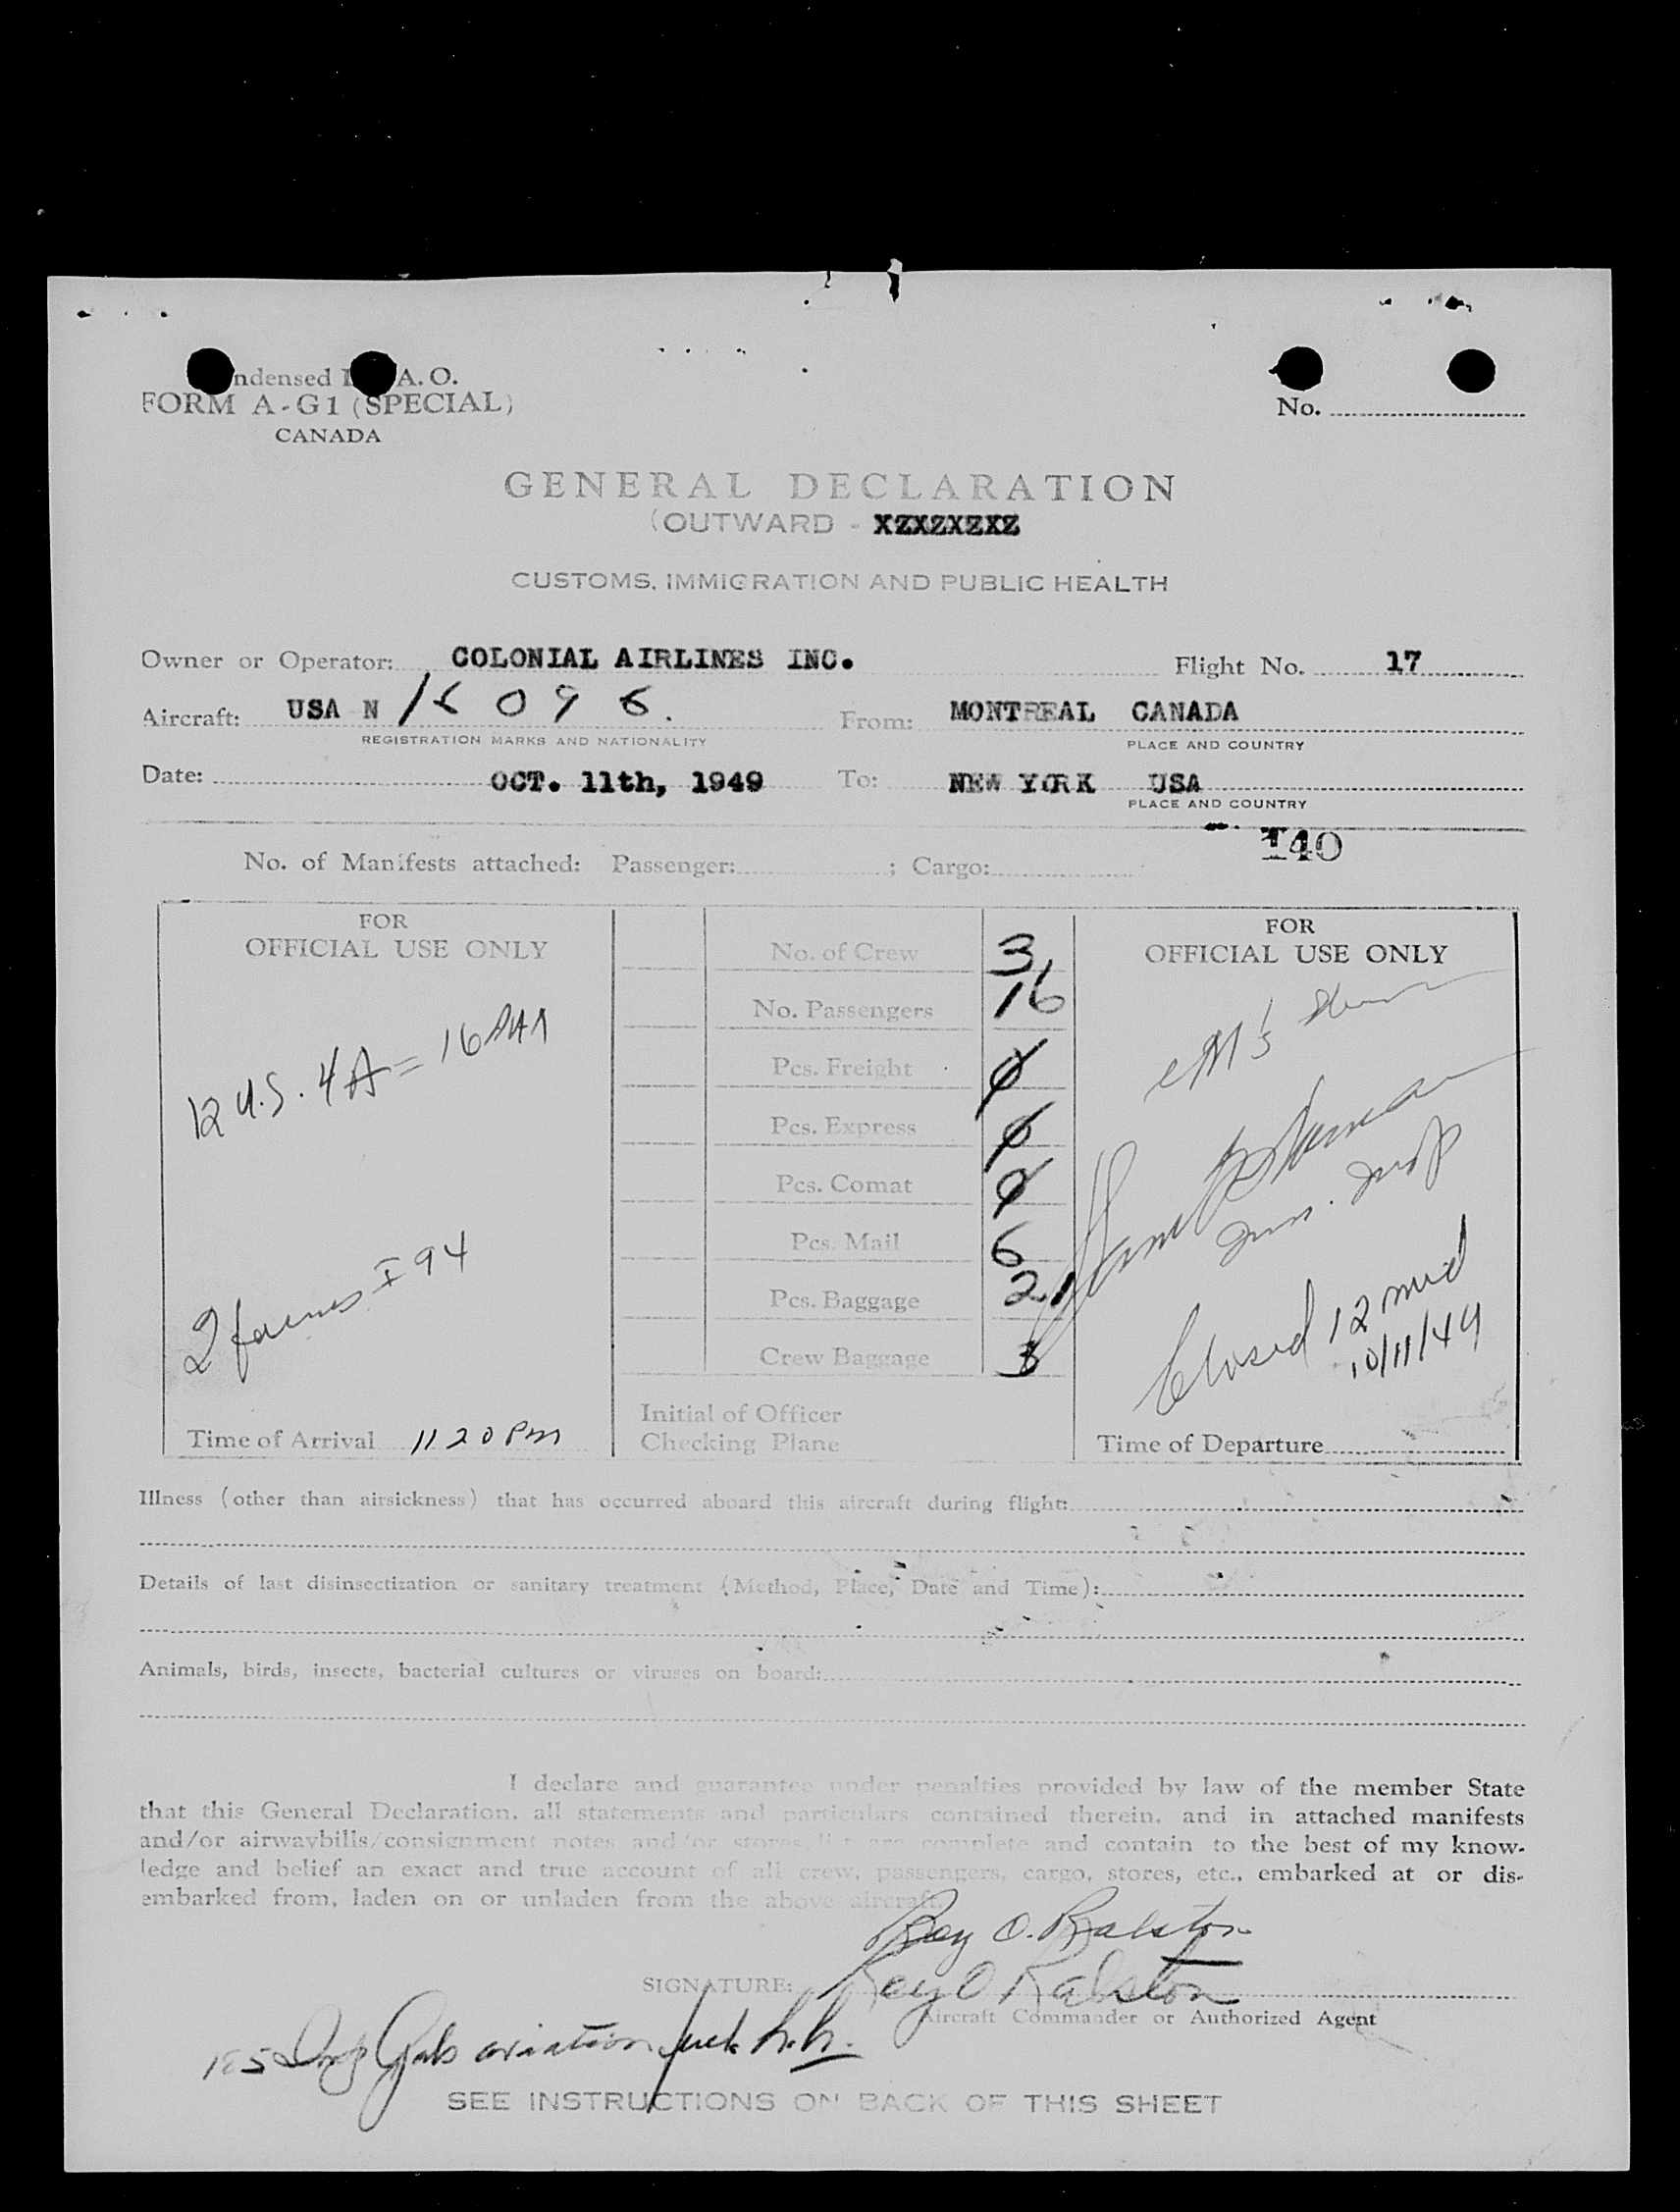 ndensed I A. O.
FORM A-G1 (SPECIAL)
CANADA
No.
GENERAL DECLARATION
(OUTWARD - XZXZXZXZ
CUSTOMS, IMMIGRATION AND PUBLIC HEALTH
Owner or Operator: COLONIAL AIRLINES INC. Flight No. 17
Aircraft: USA N From: MONTREAL CANADA
REGISTRATION MARKS AND NATIONALITY PLACE AND COUNTRY
Date: OCT. 11th, 1949 To: NEW YORK USA
PLACE AND COUNTRY
140
No. of Manifests attached: Passenger: ; Cargo:
FOR
OFFICIAL USE ONLY
12 U.S. 4A = 16
2 forms I 94
Time of Arrival 11 20 PM
No. of Crew 3
No. Passengers 16
Pcs. Freight 0
Pcs. Express 0
Pcs. Comat 0
Pcs. Mail 6
Pcs. Baggage 21
Crew Baggage 3
Initial of Officer
Checking Plane
FOR
OFFICIAL USE ONLY
Imm. Insp
Closed 12 mid
10/11/49
Time of Departure
Illness (other than airsickness) that has occurred aboard this aircraft during flight:
Details of last disinsectization or sanitary treatment (Method, Place, Date and Time):
Animals, birds, insects, bacterial cultures or viruses on board:
I declare and guarantee under penalties provided by law of the member State
that this General Declaration, all statements and particulars contained therein, and in attached manifests
and/or airwaybills/consignment notes and/or stores list are complete and contain to the best of my know-
ledge and belief an exact and true account of all crew, passengers, cargo, stores, etc., embarked at or dis-
embarked from, laden on or unladen from the above aircraft.
Roy O. Ralston
SIGNATURE: Roy O Ralston
Aircraft Commander or Authorized Agent
Gals aviation
SEE INSTRUCTIONS ON BACK OF THIS SHEET